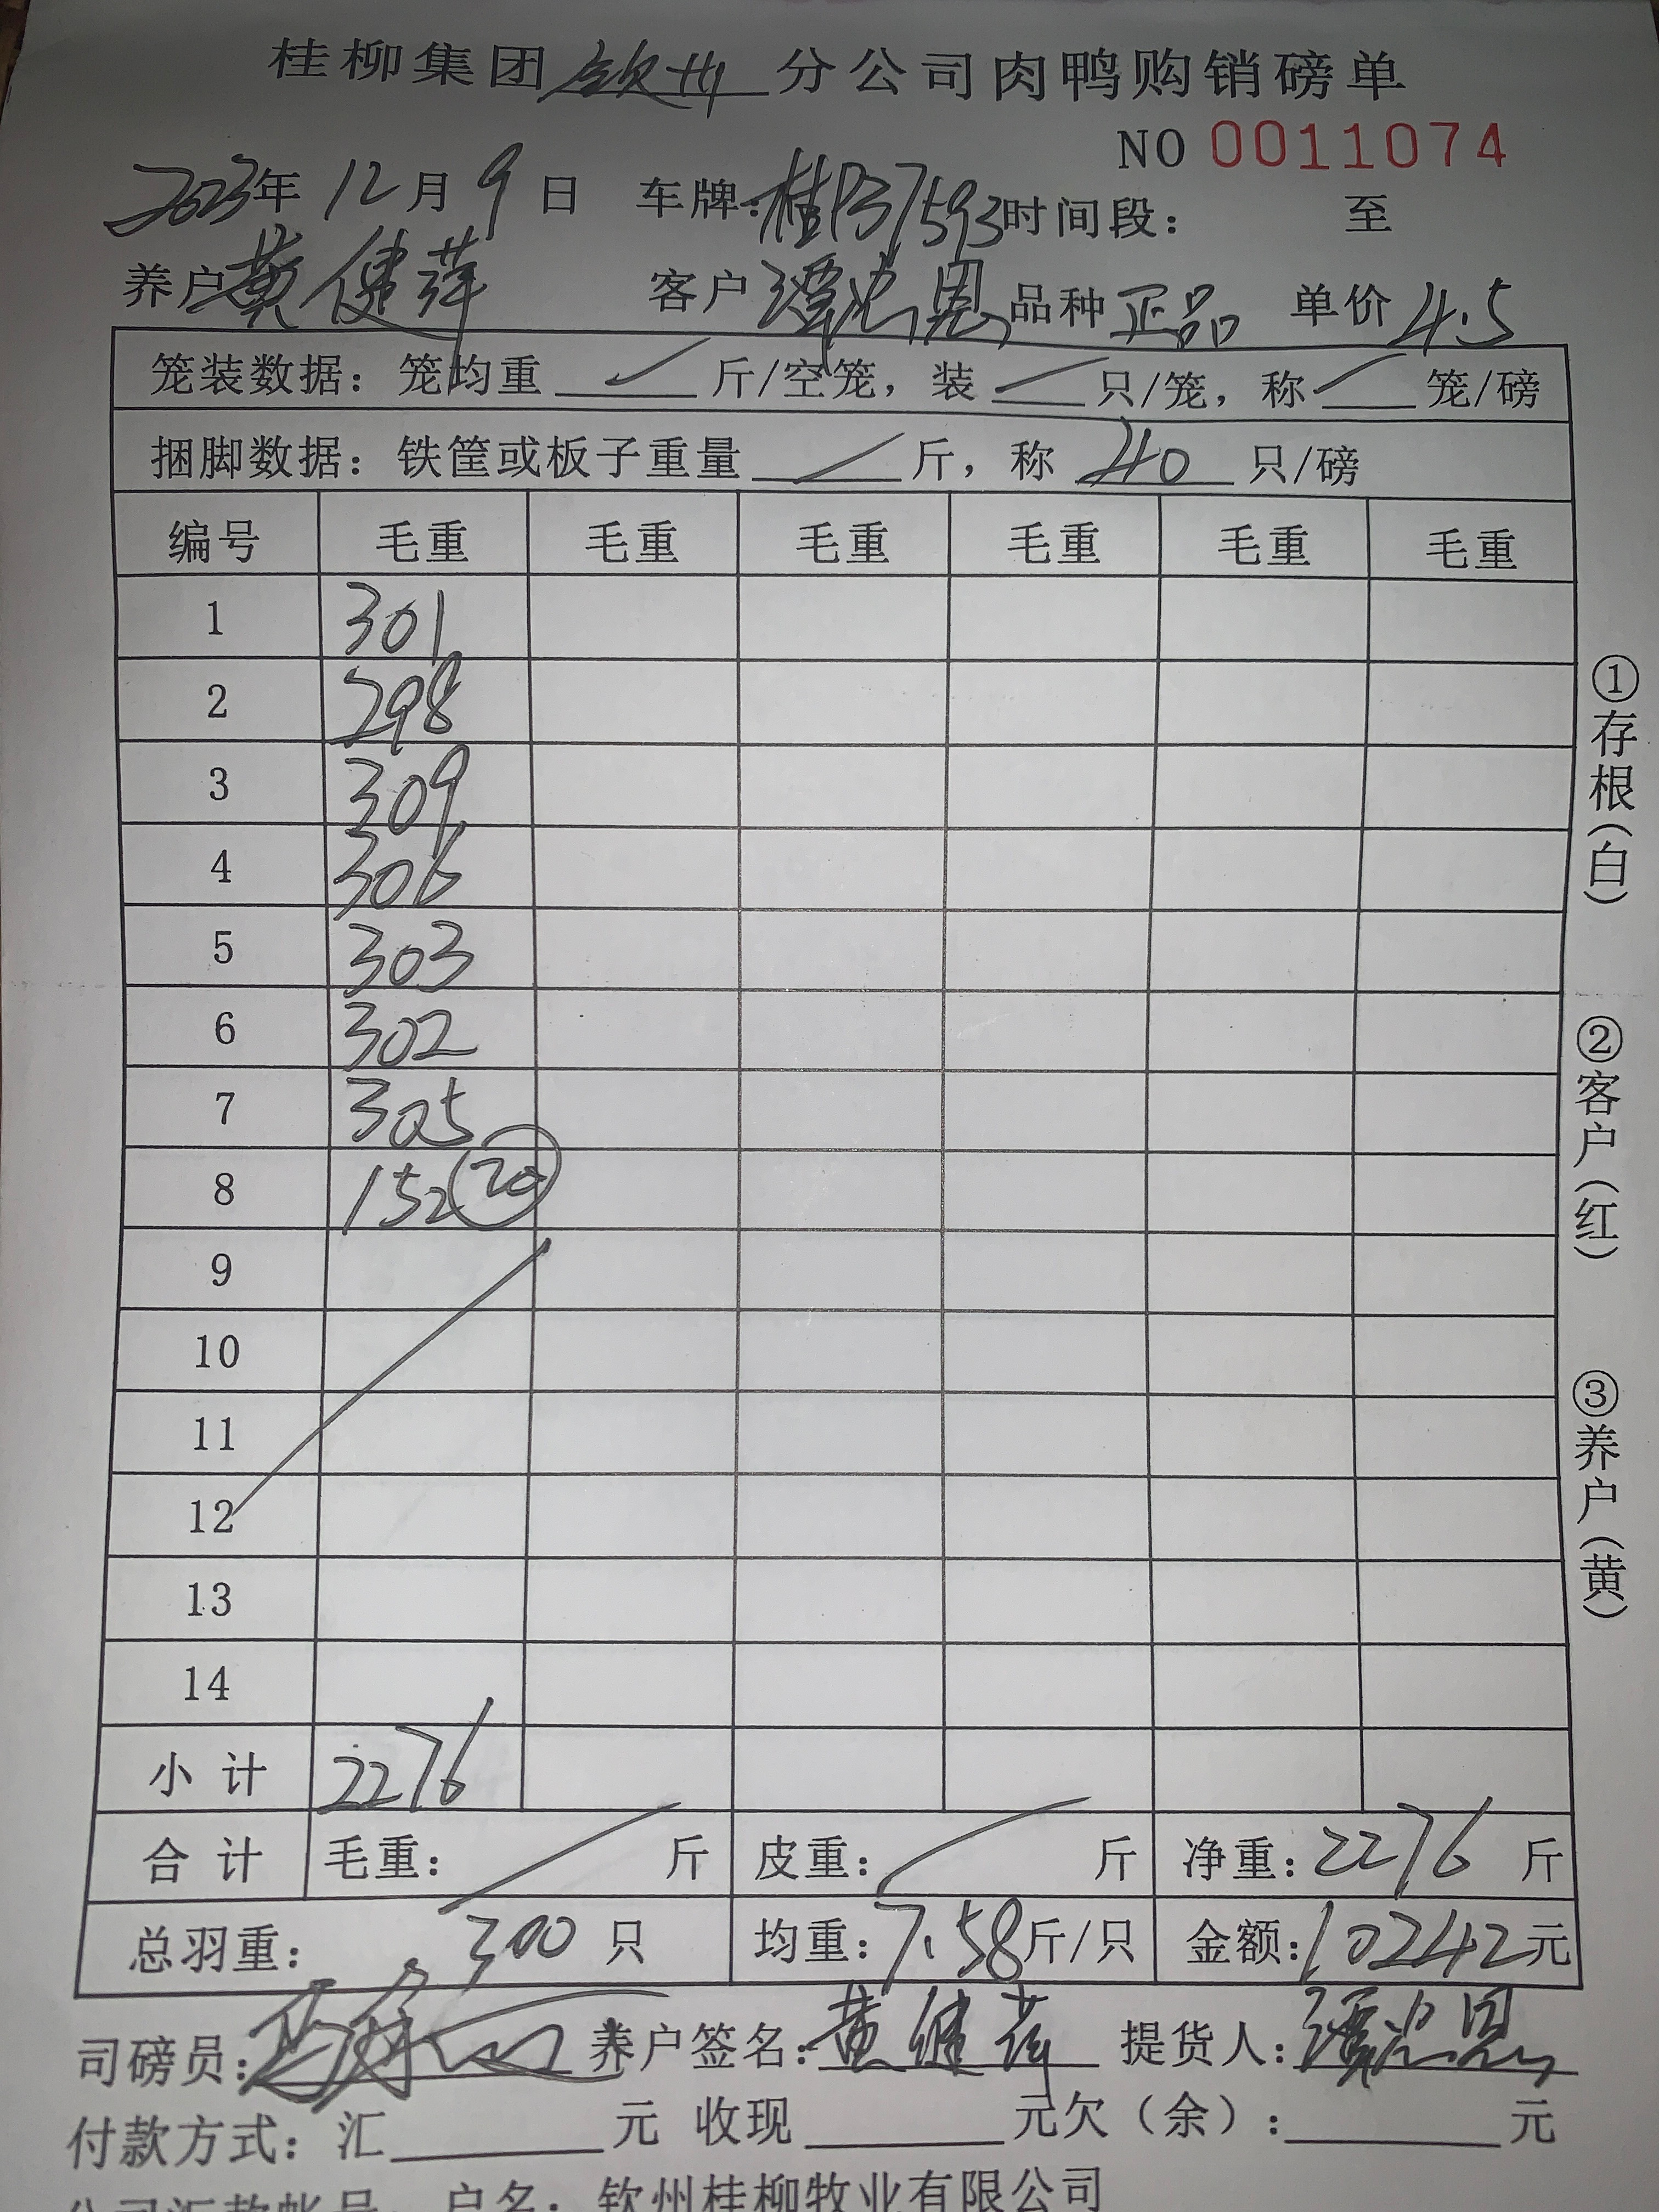 桂柳集团钦州分公司肉鸭购销磅单
NO 0011074
2023年12月9日 车牌:桂P37593时间段: 至
养户黄健萍 客户谭忠恩品种正品 单价4.5
笼装数据:笼均重 斤/空笼,装 只/笼,称 笼/磅
捆脚数据:铁筐或板子重量 斤,称40只/磅
编号 毛重 毛重 毛重 毛重 毛重 毛重
1 301
2 298
3 309
4 306
5 303
6 302
7 305
8 152 20
9
10
11
12
13
14
小计 2276
合计 毛重: 斤 皮重: 斤 净重:2276斤
总羽重:300只 均重:7.58斤/只 金额:10242元
司磅员: 养户签名:黄健萍 提货人:谭忠恩
付款方式:汇 元 收现 元欠(余): 元
公司汇款帐号 户名:钦州桂柳牧业有限公司
①存根(白)
②客户(红)
③养户(黄)